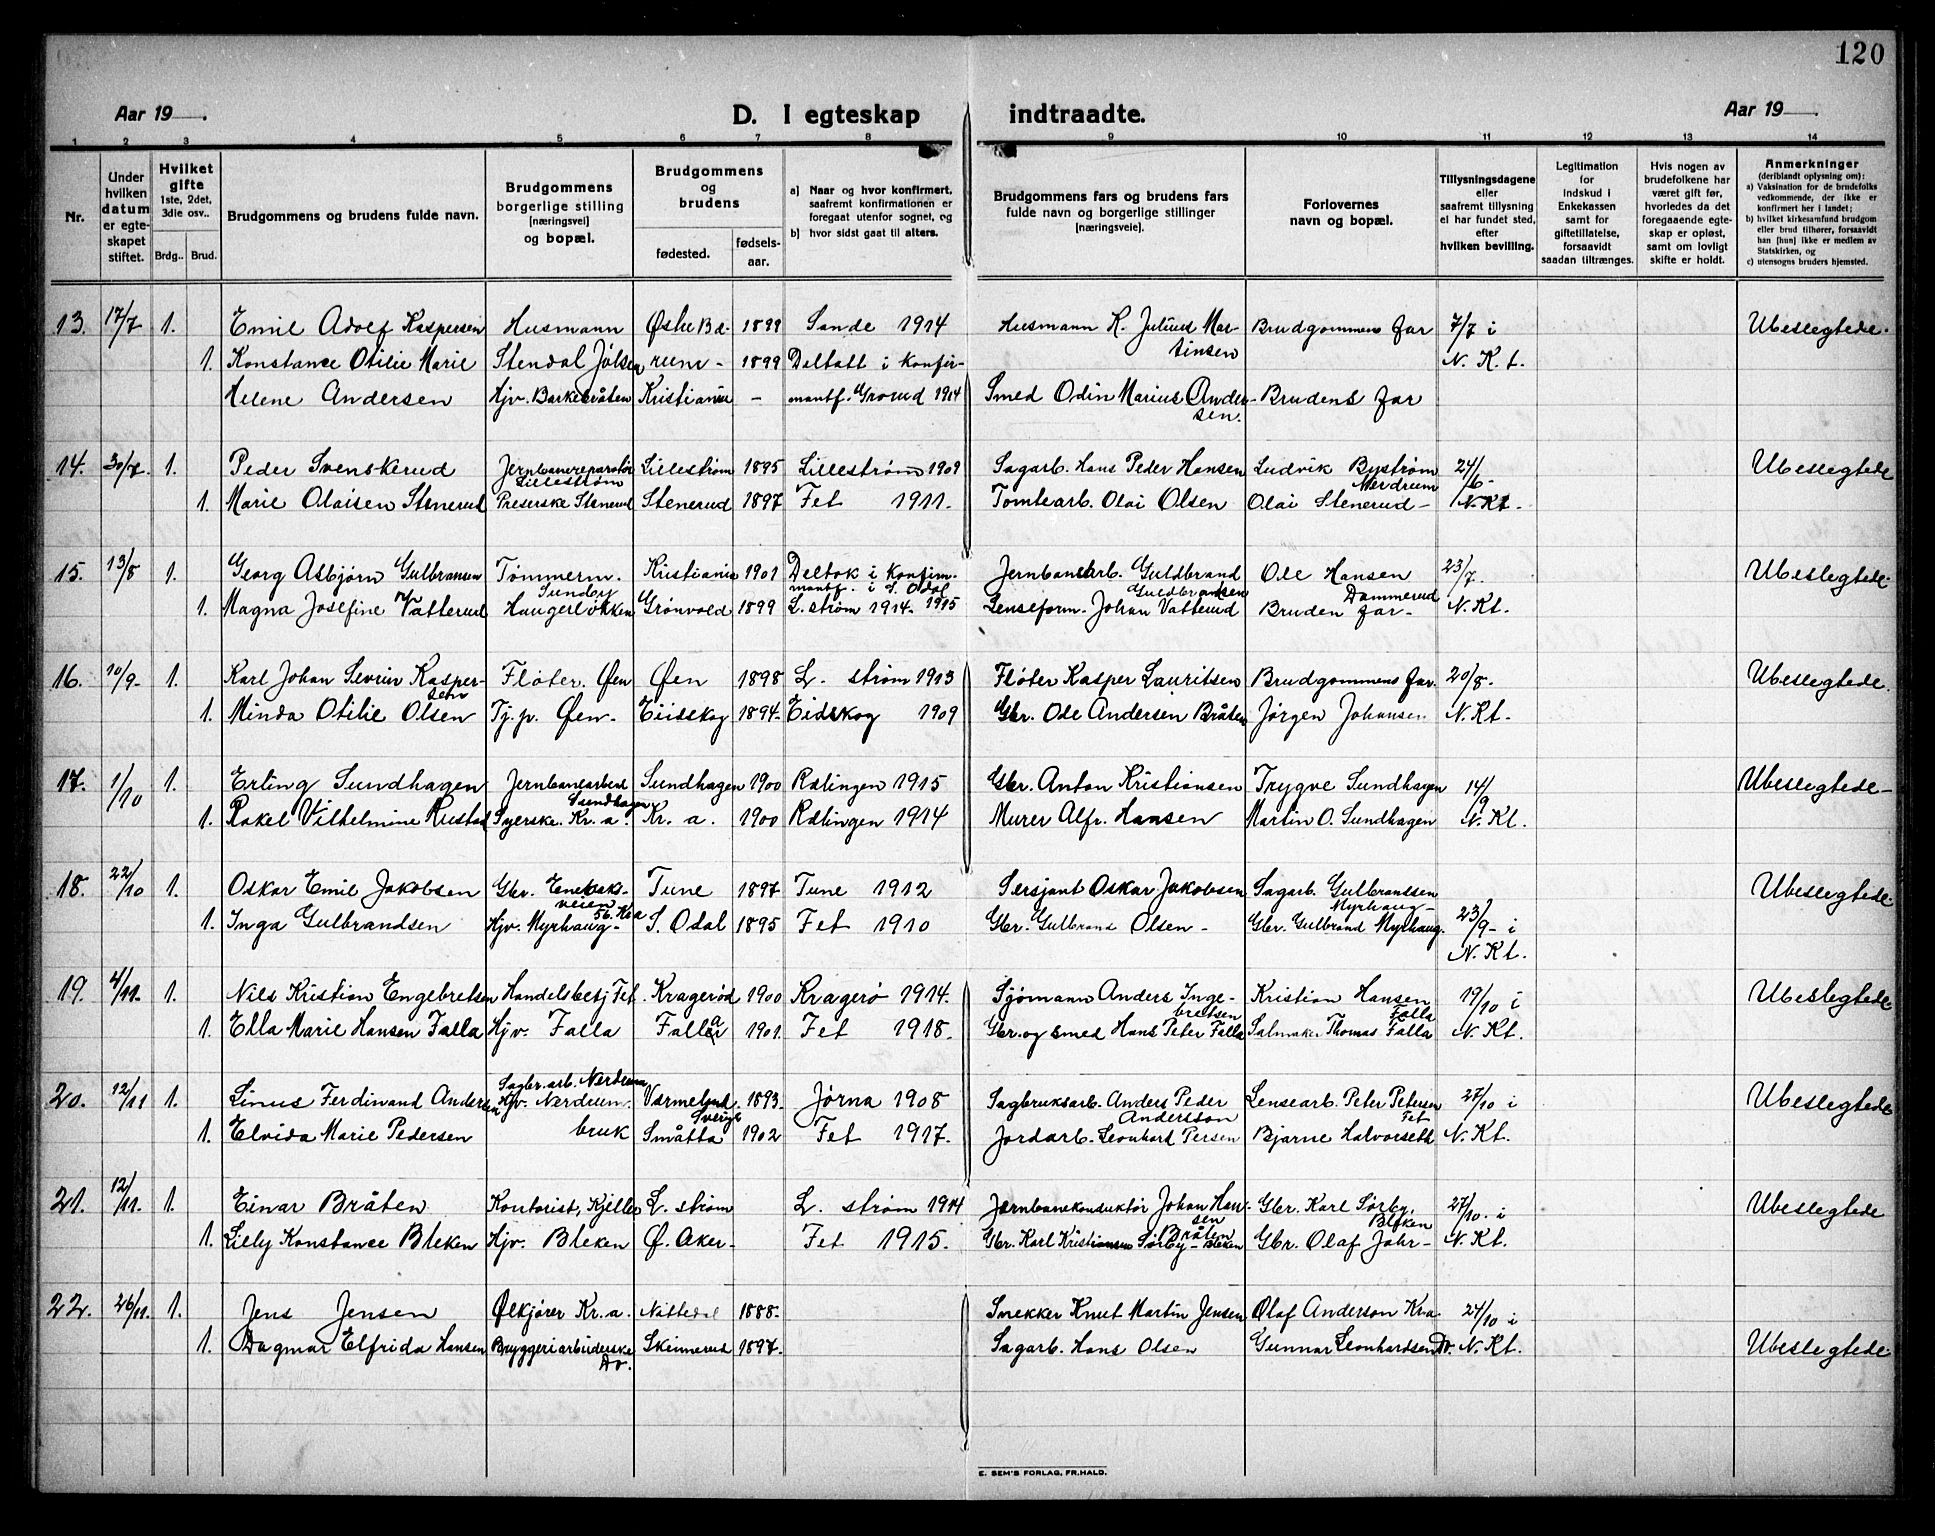 120
Aar 19
D. I egteskap indtraadte.
Aar 19
1 2 3 4 5 6 7 8 9 10 11 12 13 14
Nr.
Under hvilken datum er egteskapet stiftet.
Hvilket gifte 1ste, 2det, 3dle osv..
Brdg.. Brud.
Brudgommens og brudens fulde navn.
Brudgommens borgerlige stilling [næringsvei] og bopæl.
Brudgommens og brudens
fødested.
fødselsaar.
a) Naar og hvor konfirmert, saafremt konfirmationen er foregaat utenfor sognet, og
b) hvor sidst gaat til alters.
Brudgommens fars og brudens fars fulde navn og borgerlige stillinger [næringsveie].
Forlovernes navn og bopæl.
Tillysningsdagene eller saafremt tillysning ei har fundet sted, efter hvilken bevilling.
Legitimation for indskud i Enkekassen samt for giftetillatelse, forsaavidt saadan tiltrænges.
Hvis nogen av brudefolkene har været gift før, hvorledes da det foregaaende egteskap er opløst, samt om lovligt skifte er holdt.
Anmerkninger (deriblandt oplysning om):
a) Vaksination for de brudefolks vedkommende, der ikke er konfirmert her i landet;
b) hvilket kirkesamfund brudgom eller brud tilhører, forsaavidt han [hun] ikke er medlem av Statskirken, og
c) utensogns bruders hjemsted.
13. 17/7 1. Emil Adolf Kaspersen Husmann 1899 Sande 1914 Husmann K. Julius Mar- Brudgommens far 7/7 i Ubeslegtede.
1. Konstance Otilie Marie Stendal 1899 Deltatt i konfir- tinsen N. Kt.
Helene Andersen Hjv. Barkebråten Kristiania - mantf. Grorud 1914 Smed Odin Marius Ander- Brudens far
sen.
14. 30/7. 1. Peder Svenskerud Jernbanereparatör Lillestrøm 1895 Lillestrøm 1909 Sagarb. Hans Peder Hansen Ludvik Bystrøm 24/6- Ubeslegtede
Lillestrøm Nerdrum
1. Marie Olaisen Stenerud Stenerud Stenerud 1897 Fet 1911. Tomtearb. Olai Olsen Olai Stenerud - N. Kt.
15. 13/8 1. Georg Asbjørn Gulbransen Tømmerm. Kristiania 1901 Deltok i konfirm- Jernbanearb. Guldbrand Ole Hansen 23/7. Ubeslegtede.
Sundby mantf. i S. Odal 1915 Guldbrandsen Dammerud
1. Magna Josefine Vatterud Haugerløkken Grønvold 1899 L. strøm 1914. Lenseform. Johan Vatterud Bruden far - N. Kt.
16. 10/9. 1. Karl Johan Sevrin Kasper- Fløter. Øen Øen 1898 L. strøm 1913 Fløter Kasper Lauritsen Brudgommens far. 20/8. Ubeslegtede.
sen
1. Minda Otilie Olsen Tj. p. Øen. Eidskog 1894. Eidskog 1909 Gbr. Ole Andersen Bråten Jørgen Johansen N. Kt.
17. 1/10 1. Erling Sundhagen Jernbanearbeid Sundhagen 1900 Rælingen 1915 Gbr. Anton Kristiansen Trygve Sundhagen 14/9 Ubeslegtede-
Sundhagen
1. Rakel Vilhelmine Rustad Syerske. Kr. a. Kr. a. 1900 Rælingen 1914 Murer Alfr. Hansen Martin O. Sundhagen N. Kt.
18. 22/10 1. Oskar Emil Jakobsen Gbr. Enebak- Tune 1897 Tune 1912 Sersjant Oskar Jakobsen Sagarb. Gulbrantsen Ubeslegtede.
veien 56. Kr a Myrhaug -
1. Inga Gulbrandsen Hjv. Myrhaug- S. Odal 1895 Fet 1910 Gbr. Gulbrans Olsen - Gbr. Gulbrand Myrhaug. 23/9- i
N. Kt.
19. 4/11. 1. Nils Kristian Engebretsen Handelsbetj Fet. Kragerød 1900 Kragerø 1914. Sjømann Anders Inge- Kristian Hansen 19/10 i Ubeslegtede.
bretsen Falla
1. Ella Marie Hansen Falla Hjv. Falla Falla 1901. Fet 1918. Gbr. og smed Hans Peter Falla Salmaker Thomas Falla N. Kt.
20. 12/11 1. Linus Ferdinand Andersen Sagbr. arb. Nerdrum Værmeland. 1893. Jørna 1908 Sagbruksarb. Anders Peder Lensearb. Peter Petersen 27/10 i Ubeslegtede
Hjv. Nerdrum. Sverige Andersson Fet
1. Elvida Marie Pedersen bruk Småtta 1902 Fet 1917. Jordarb. Leonhard Persen Bjarne Halvorseth N. Kt.
21. 12/11. 1. Einar Bråten Kontorist, Kjeller L. strøm L. strøm 1914 Jernbanekonduktør Johan Han- Gbr. Karl Sørby, 27/10. i Ubeslegtede
sen Bråten Bleken
1. Lilly Konstance Bleken Hjv. Bleken Ø. Aker- Fet 1915. Gbr. Karl Kristiansen Sørby - Bleken Gbr. Olaf Johr - N. Kt.
22. 26/11. 1. Jens Jensen Ølkjører Kr. a. Nittedal 1888. Snekker Knut Martin Jensen Olaf Anderson Kr a. 24/10 i
1. Dagmar Elfrida Hansen Bryggeriarbiderske Skinnerud 1897. Sagarb. Hans Olsen Gunnar Leonhardsen Do. N. Kt. Ubeslegtede.
Do.
E. SEM'S FORLAG, FR.HALD.